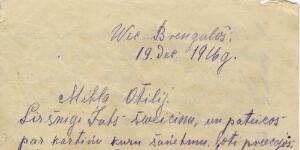 Wec Brengulos.
19. dec. 1916g.
Mihļa Otilij.
Sirsnigi Jums sweicinu, un pateicos
par kartinu kuru saņehmu, ļoti preezajos